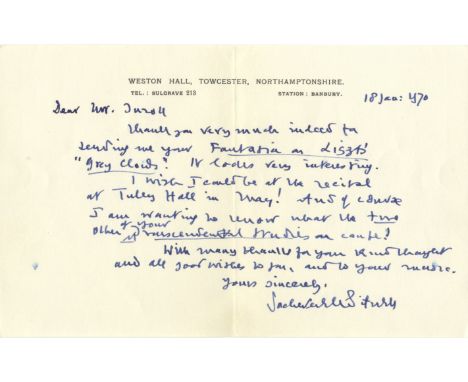 WESTON HALL, TOWCESTER, NORTHAMPTONSHIRE.
TEL.: SULGRAVE 213 STATION: BANBURY.
18 Jan: 1970
Dear Mr.
Thank you very much indeed for
sending me your Fantasia on Liszt's
"Grey Clouds". It looks very interesting.
I wish I could be at the recital
at Tully Hall in May! And of course
I am wanting to know what the two
other of your Transcendental Studies on can be!
With many thanks for your kind thought
and all good wishes to you, and to your music.
Yours sincerely,
Sacheverell Sitwell